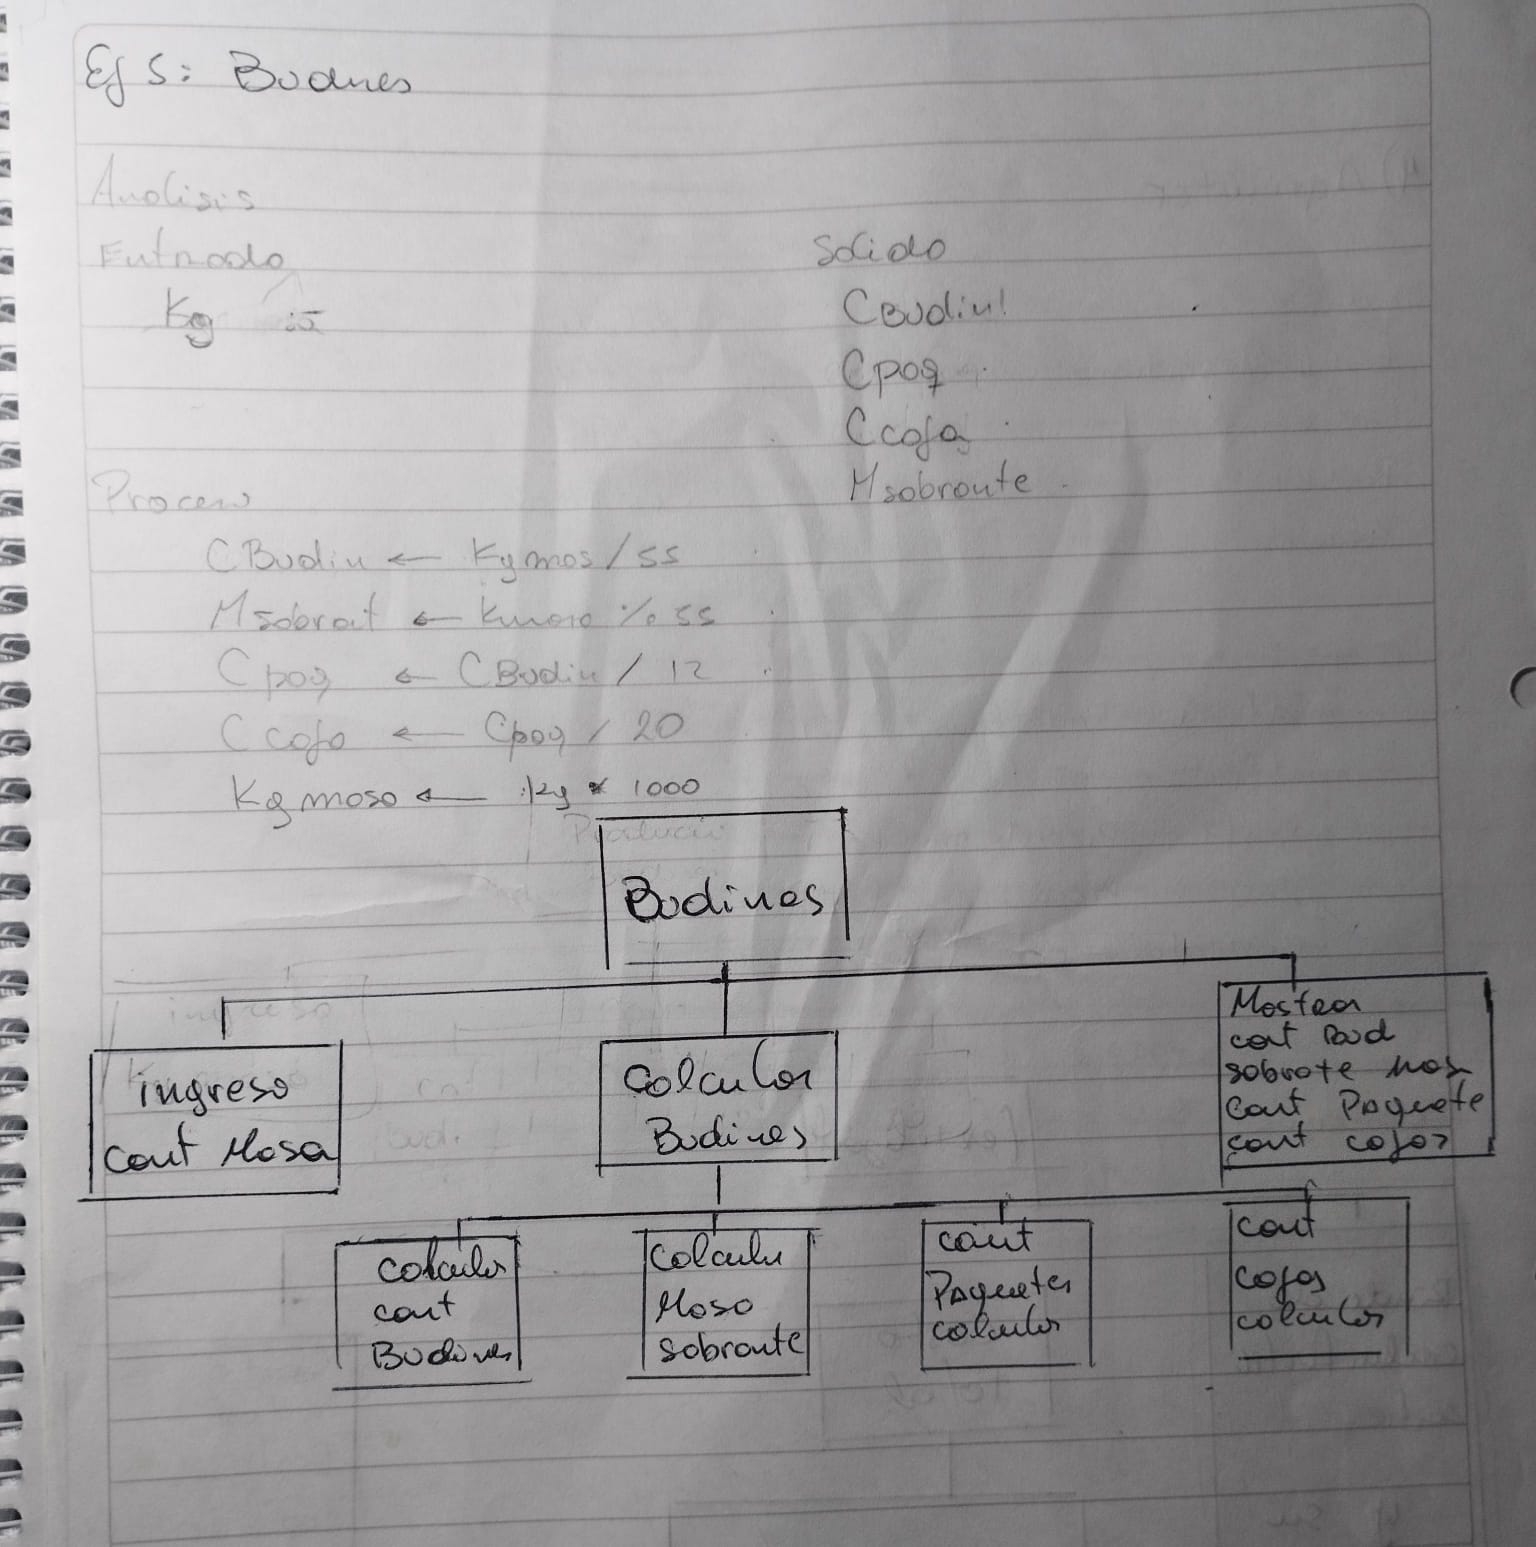 Ej 5: Budines
Analisis
Entrada
Kg
Salida
CBudin
Cpaq
Ccaja
Msobrante
Proceso
CBudin ← Kgmas / 55
Msobrat ← Kmasa % 55
Cpaq ← CBudin / 12
Ccaja ← Cpaq / 20
Kgmasa ← Kg * 1000
Budines
ingreso
cant Masa
calcular
Budines
Mostrar
cant Bud
sobrate mas
cant Paquete
cant cajas
calcular
cant
Budines
calcula
Masa
sobrante
cant
Paquetes
calcular
cant
cajas
calcular